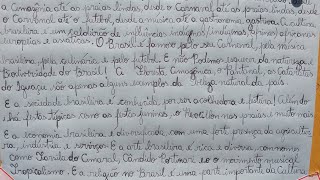 a Amazônia até as praias lindas, desde o Carnaval até as praias lindas, desde
o Carnaval até o futebol, desde a música até a gastronomia, a cultura
brasileira é um de influências indígenas, africanas
europeias e asiáticas. O Brasil é famoso pelo seu Carnaval, pela música
pela culinária e pelo futebol. E não podemos esquecer da natureza e
Biodiversidade do Brasil! A Floresta Amazônica, o Pantanal, as Cataratas
do Iguaçu, são apenas alguns exemplos da beleza natural do país
E a sociedade brasileira é conhecida por ser acolhedora e festiva! Além do
há festas típicas como as festas juninas, o Réveillon nas praias e muito mais
E a economia brasileira é diversificada com uma forte presença da agricultu
ra, indústria e serviços. E a arte brasileira é rica e diversa, com nomes
como Tarsila do Amaral, Cândido Portinari e o movimento musical
Tropicalismo. E a religião no Brasil é uma parte importante da cultura